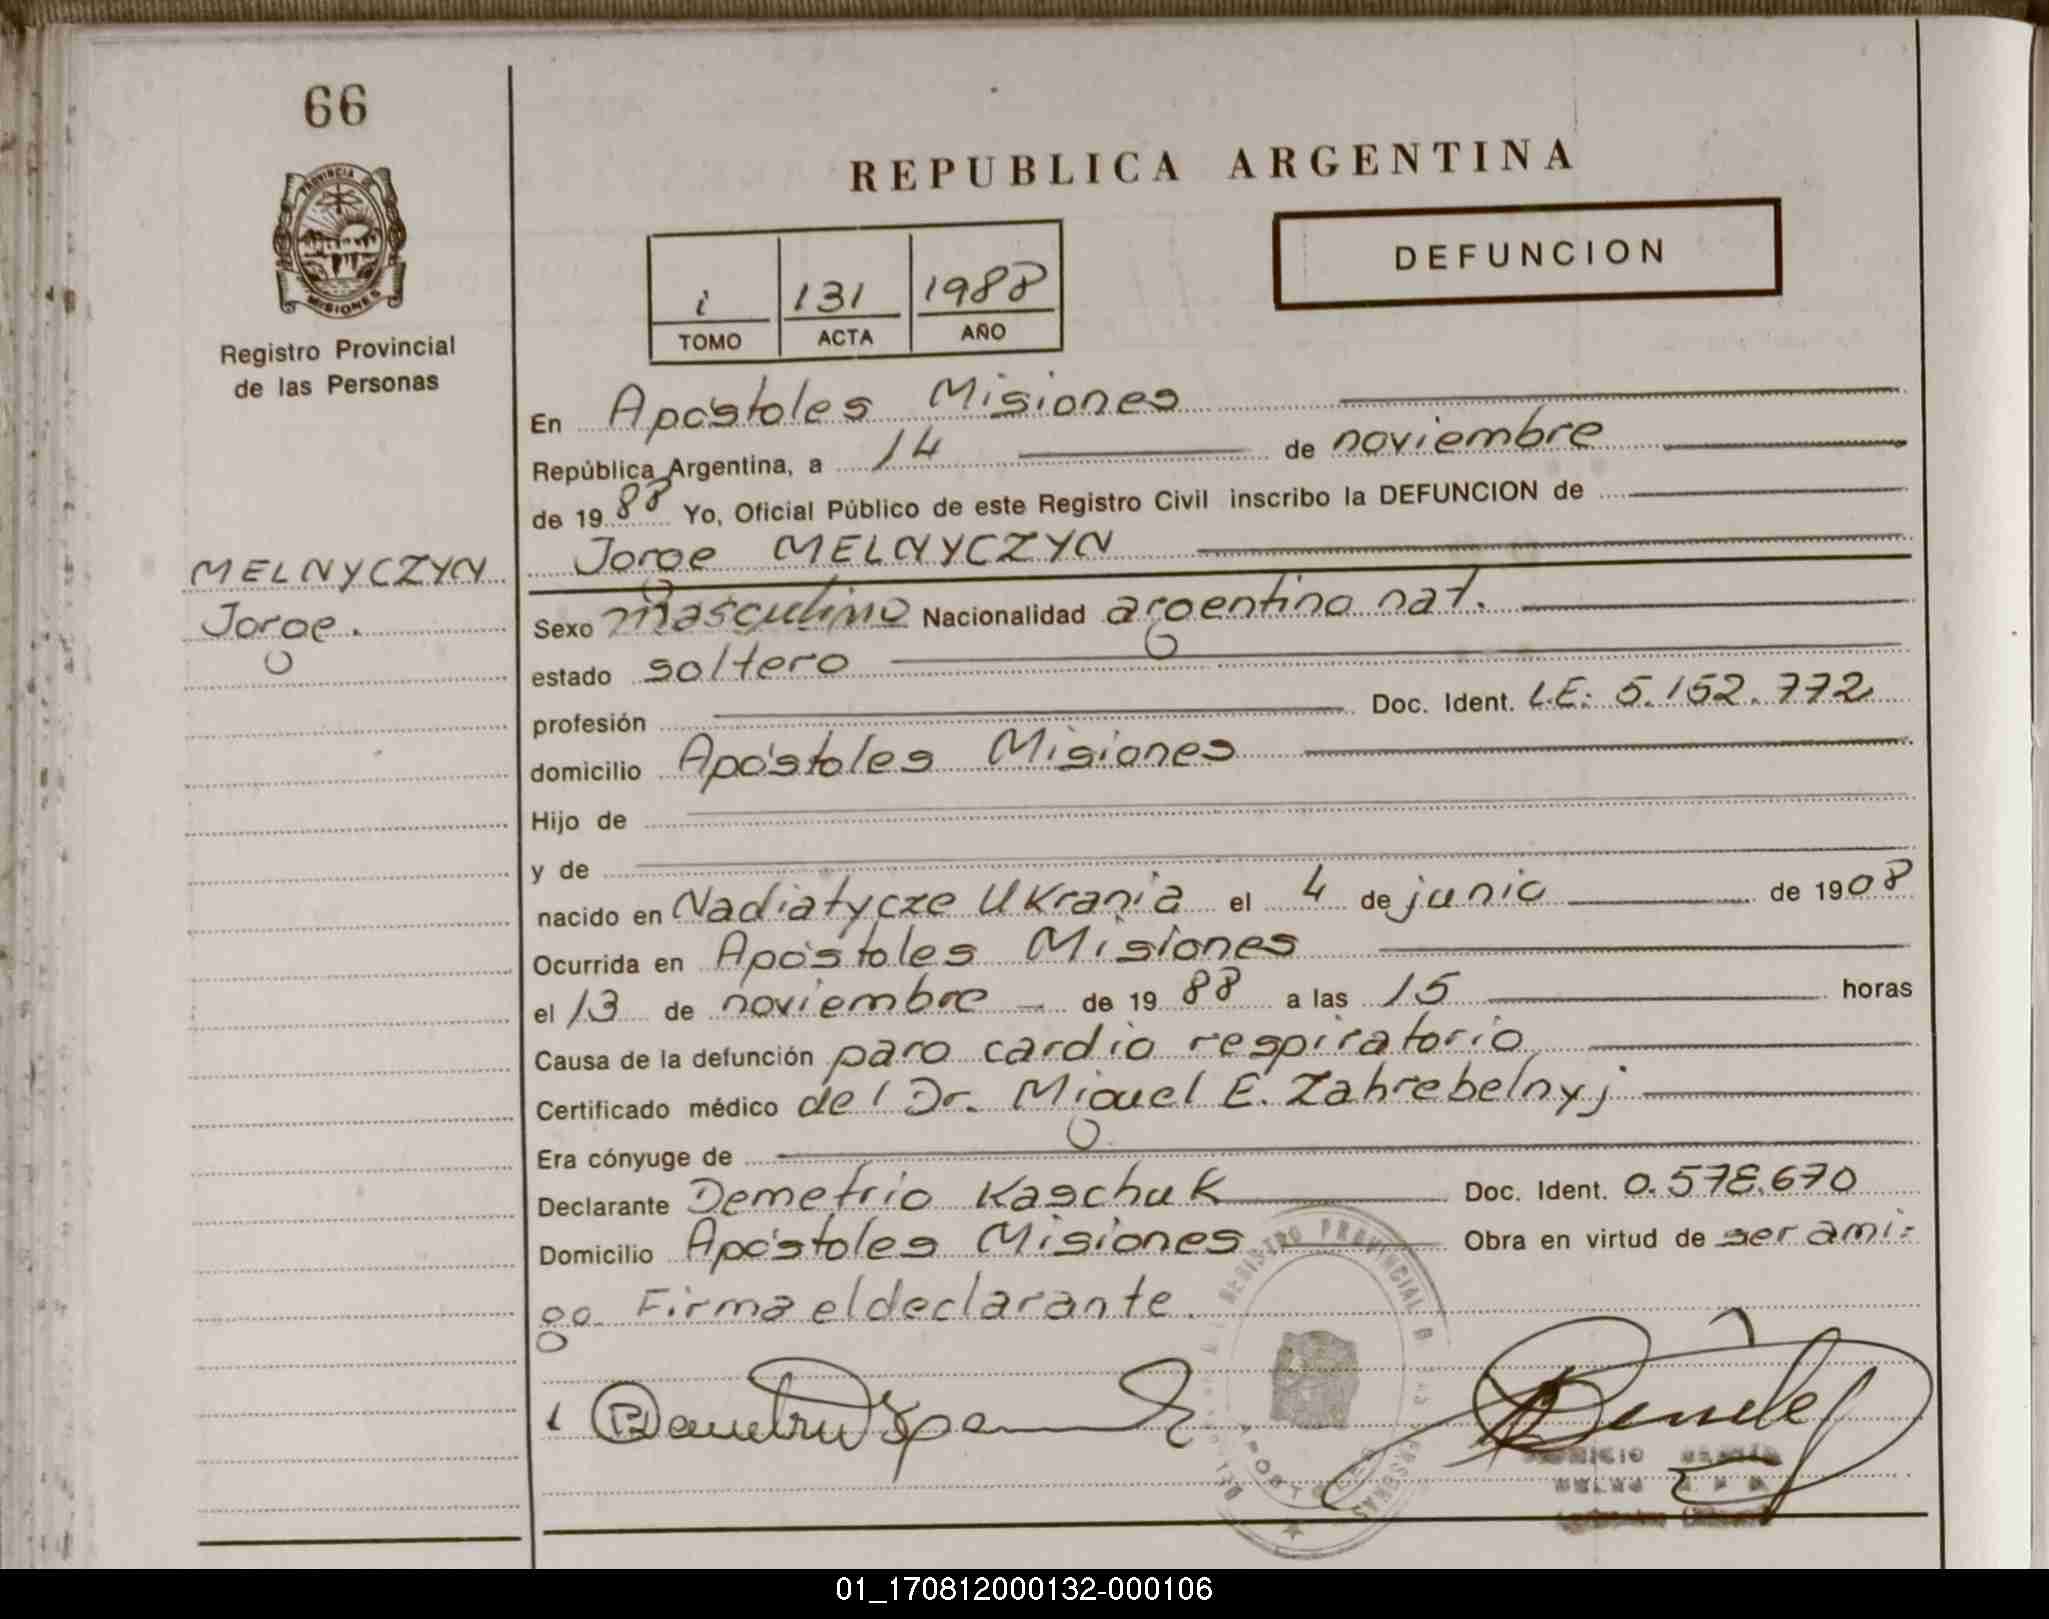 66
PROVINCIA DE
MISIONES
Registro Provincial
de las Personas
REPUBLICA ARGENTINA
DEFUNCION
i 131 1988
TOMO ACTA AÑO
En Apóstoles Misiones
República Argentina, a 14 de noviembre
de 1988 Yo, Oficial Público de este Registro Civil inscribo la DEFUNCION de
Jorge MELNYCZYN
MELNYCZYN
Jorge.
Sexo masculino Nacionalidad argentino nat.
estado soltero
profesión Doc. Ident. L.E: 5.152.772
domicilio Apóstoles Misiones
Hijo de
y de
nacido en Nadiatycze UKrania el 4 de junio de 1908
Ocurrida en Apóstoles Misiones
el 13 de noviembre de 1988 a las 15 horas
Causa de la defunción paro cardio respiratorio
Certificado médico del Dr. Miguel E. Zahrebelnyj
Era cónyuge de
Declarante Demetrio Kaschuk Doc. Ident. 0.578.670
Domicilio Apóstoles Misiones Obra en virtud de ser ami=
go. Firma el declarante.
REGISTRO PROVINCIAL D LAS PERSONAS
01_170812000132-000106